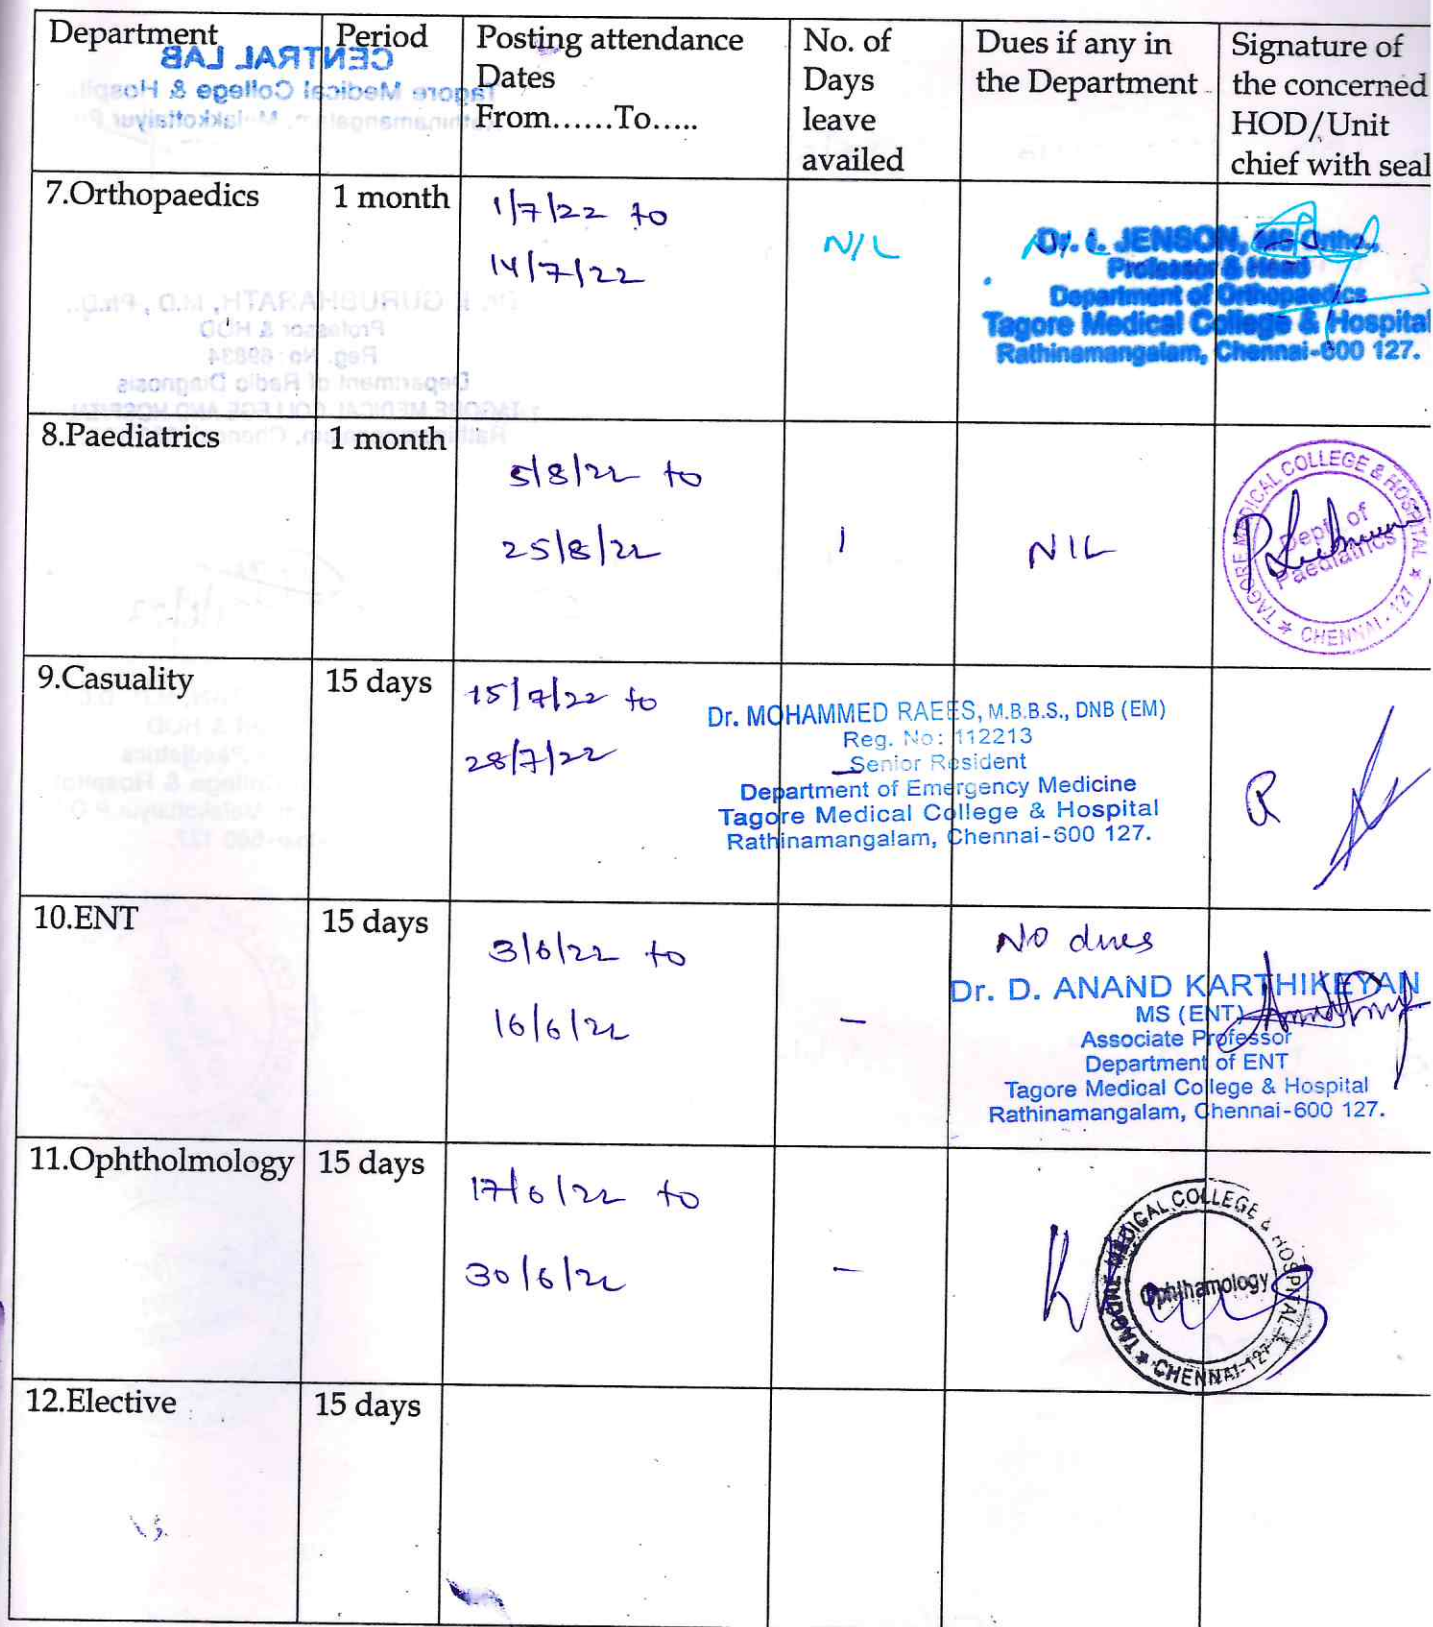 Department
Period
Posting attendance
Dates
From......To.....
No. of
Days
leave
availed
Dues if any in
the Department
Signature of
the concerned
HOD/Unit
chief with seal
CENTRAL LAB
Tagore Medical College & Hospital
7.Orthopaedics
1 month
1/7/22 to
14/7/22
NIL
Dr. L. JENSON, MS Ortho.,
Professor & Head
Department of Orthopaedics
Tagore Medical College & Hospital
Rathinamangalam, Chennai-600 127.
GURUBHARATH, M.D., Ph.D.,
Professor & HOD
Reg. No 69834
Department of Radio Diagnosis
TAGORE MEDICAL COLLEGE AND HOSPITAL
8.Paediatrics
1 month
5/8/22 to
25/8/22
1
NIL
TAGORE MEDICAL COLLEGE & HOSPITAL
Dept. of
Paediatrics
CHENNAI - 127
9.Casuality
15 days
15/7/22 to
28/7/22
Dr. MOHAMMED RAEES, M.B.B.S., DNB (EM)
Reg. No: 112213
Senior Resident
Department of Emergency Medicine
Tagore Medical College & Hospital
Rathinamangalam, Chennai-600 127.
10.ENT
15 days
3/6/22 to
16/6/22
-
No dues
Dr. D. ANAND KARTHIKEYAN
MS (ENT)
Associate Professor
Department of ENT
Tagore Medical College & Hospital
Rathinamangalam, Chennai-600 127.
11.Ophtholmology
15 days
17/6/22 to
30/6/22
-
TAGORE MEDICAL COLLEGE & HOSPITAL
Ophthamology
CHENNAI-127
12.Elective
15 days